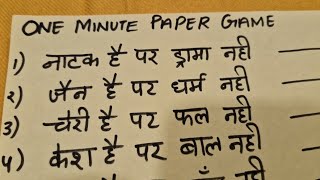 ONE MINUTE PAPER GAME
1) नाटक है पर ड्रामा नही
2) जैन है पर धर्म नही
3) चेरी है पर फल नही
4) केश है पर बाल नही
है नही